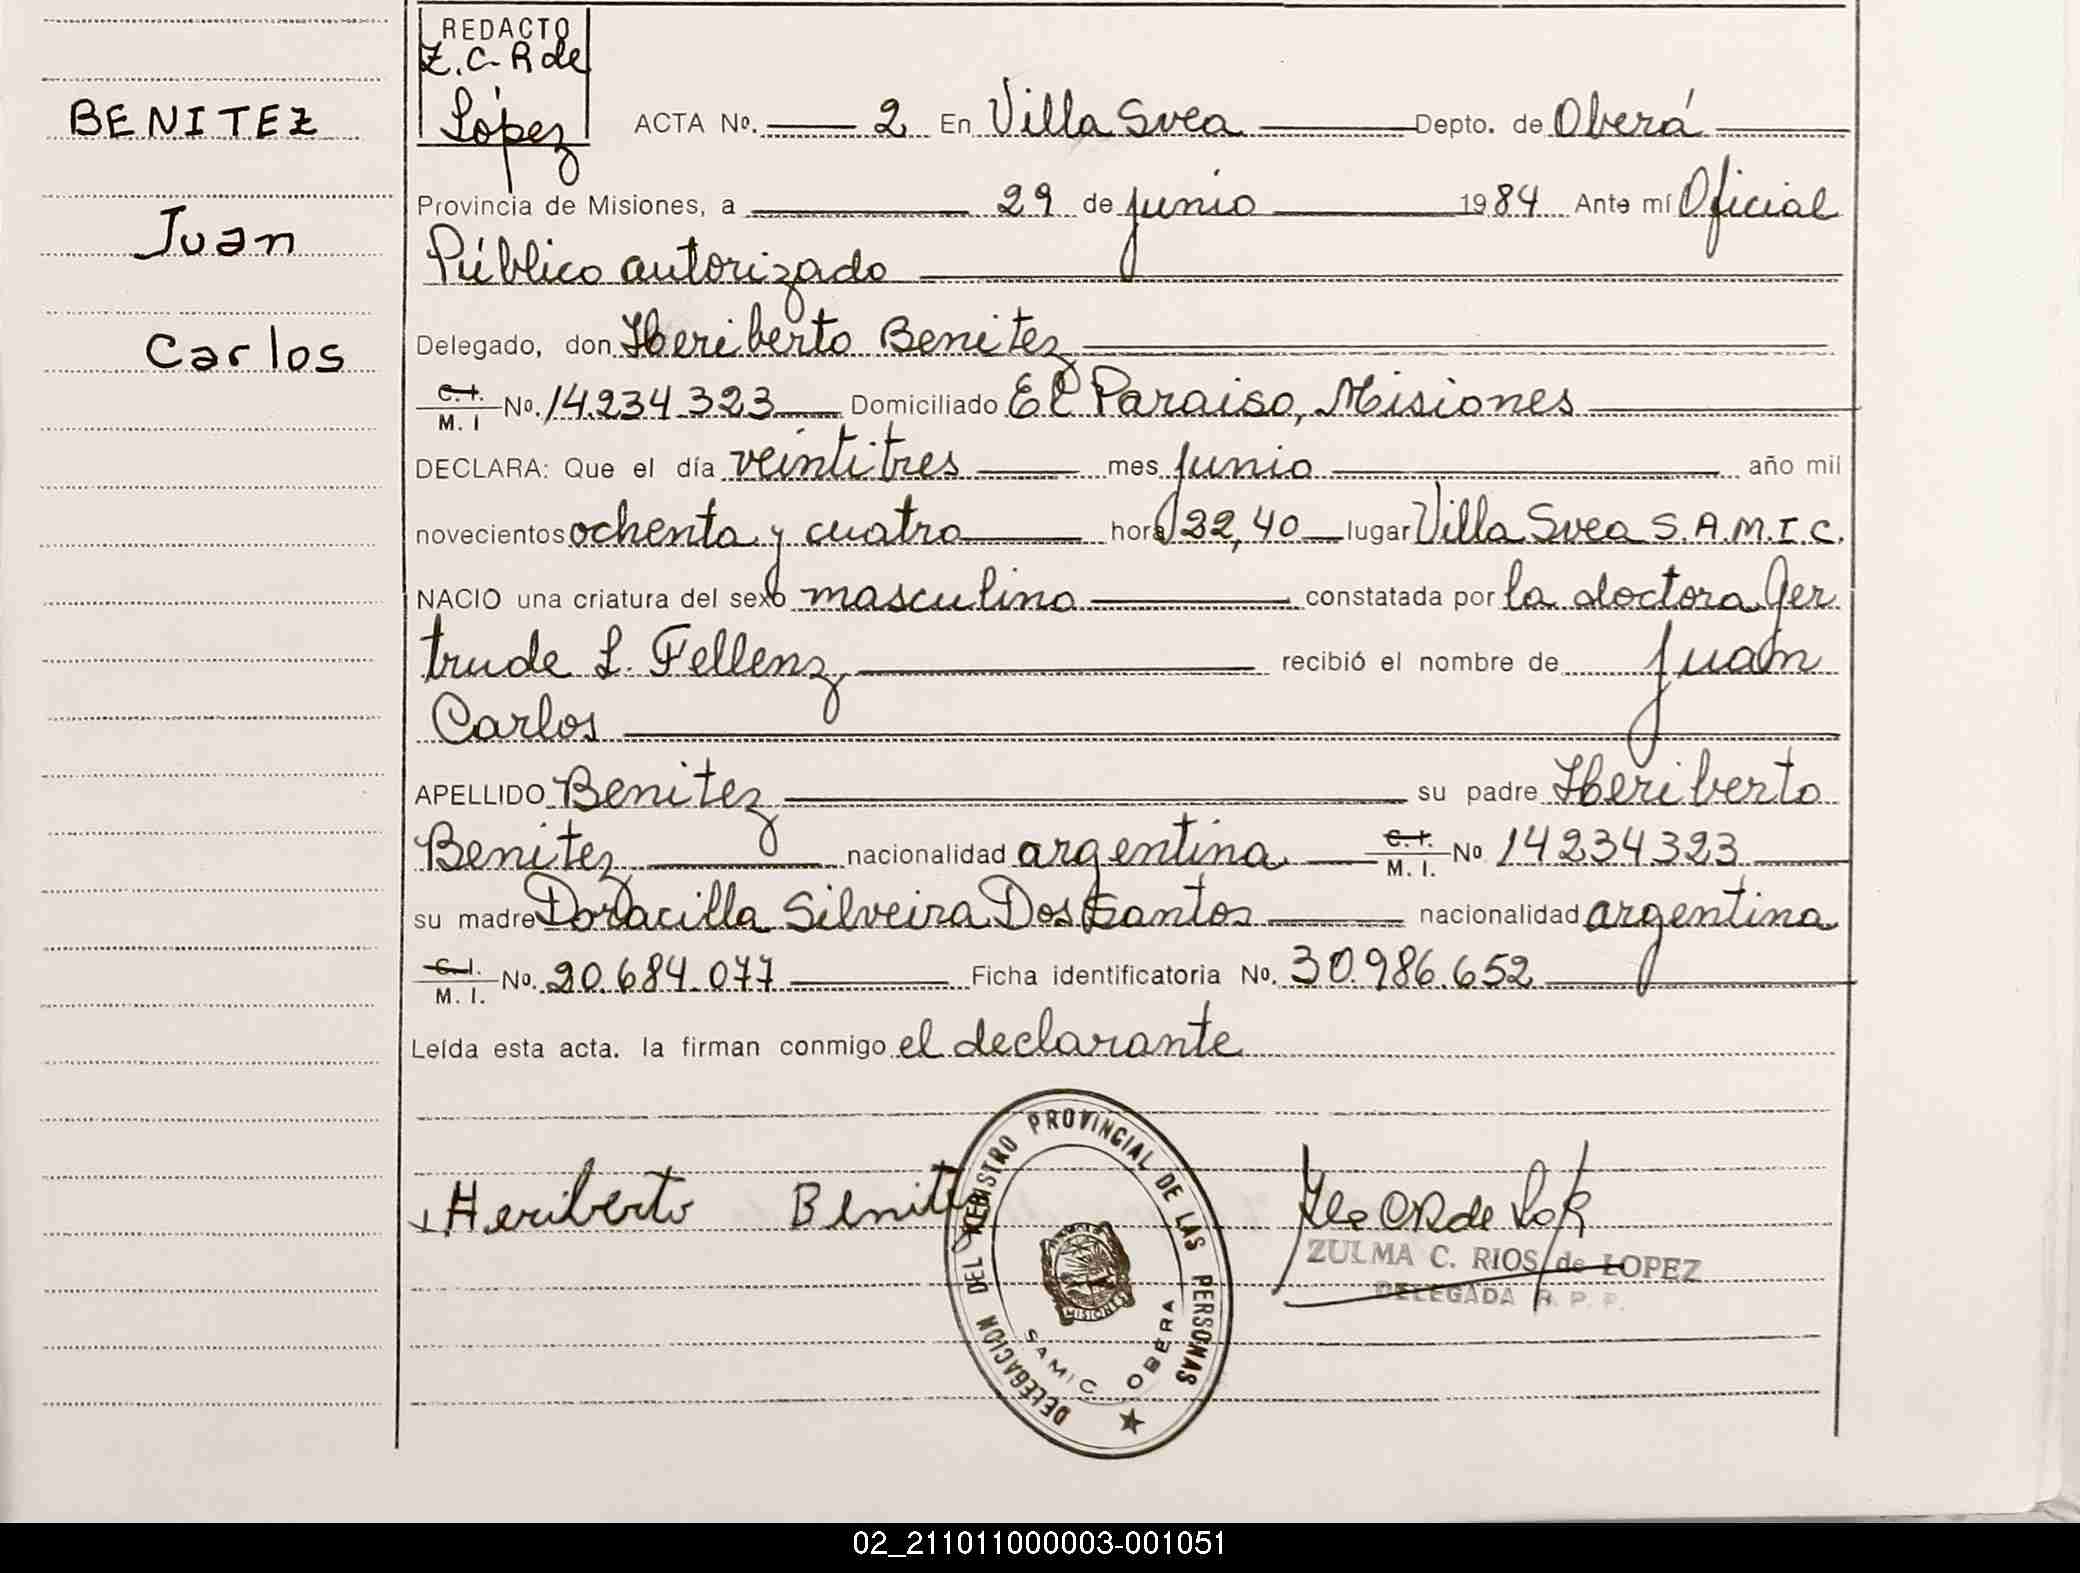 REDACTO
Z. C. R de
López
BENITEZ
Juan
Carlos
ACTA No. 2 En Villa Svea Depto. de Oberá
Provincia de Misiones, a 29 de junio 1984 Ante mí Oficial
Público autorizado
Delegado, don Heriberto Benitez
C.I.
M. I No. 14.234.323 Domiciliado El Paraiso, Misiones
DECLARA: Que el día veintitres mes junio año mil
novecientos ochenta y cuatro hora 22,40 lugar Villa Svea S.A.M.I.C.
NACIO una criatura del sexo masculino constatada por la doctora Ger
trude L. Fellenz recibió el nombre de Juan
Carlos
APELLIDO Benitez su padre Heriberto
Benitez nacionalidad argentina C.I.
M. I. No 14234323
su madre Doracilla Silveira Dos Santos nacionalidad argentina
C.I.
M. I. No. 20.684.077 Ficha identificatoria No. 30.986.652
Leída esta acta. la firman conmigo el declarante
Heriberto Benitez
DELEGACION DEL REGISTRO PROVINCIAL DE LAS PERSONAS
MISIONES
SAMIC OBERA
ZULMA C. RIOS de LOPEZ
DELEGADA R. P. P.
02_211011000003-001051